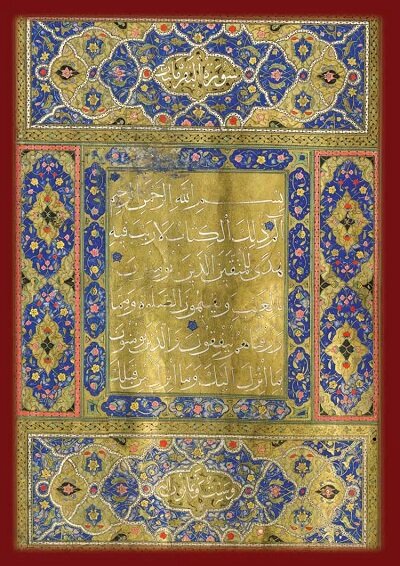 سورة البقرة
بسم الله الرحمن الرحيم
الم ذلك الكتاب لا ريب فيه
هدى للمتقين الذين يؤمنون
بالغيب ويقيمون الصلوة ومما
رزقناهم ينفقون والذين يؤمنون
بما انزل اليك وما انزل من قبلك